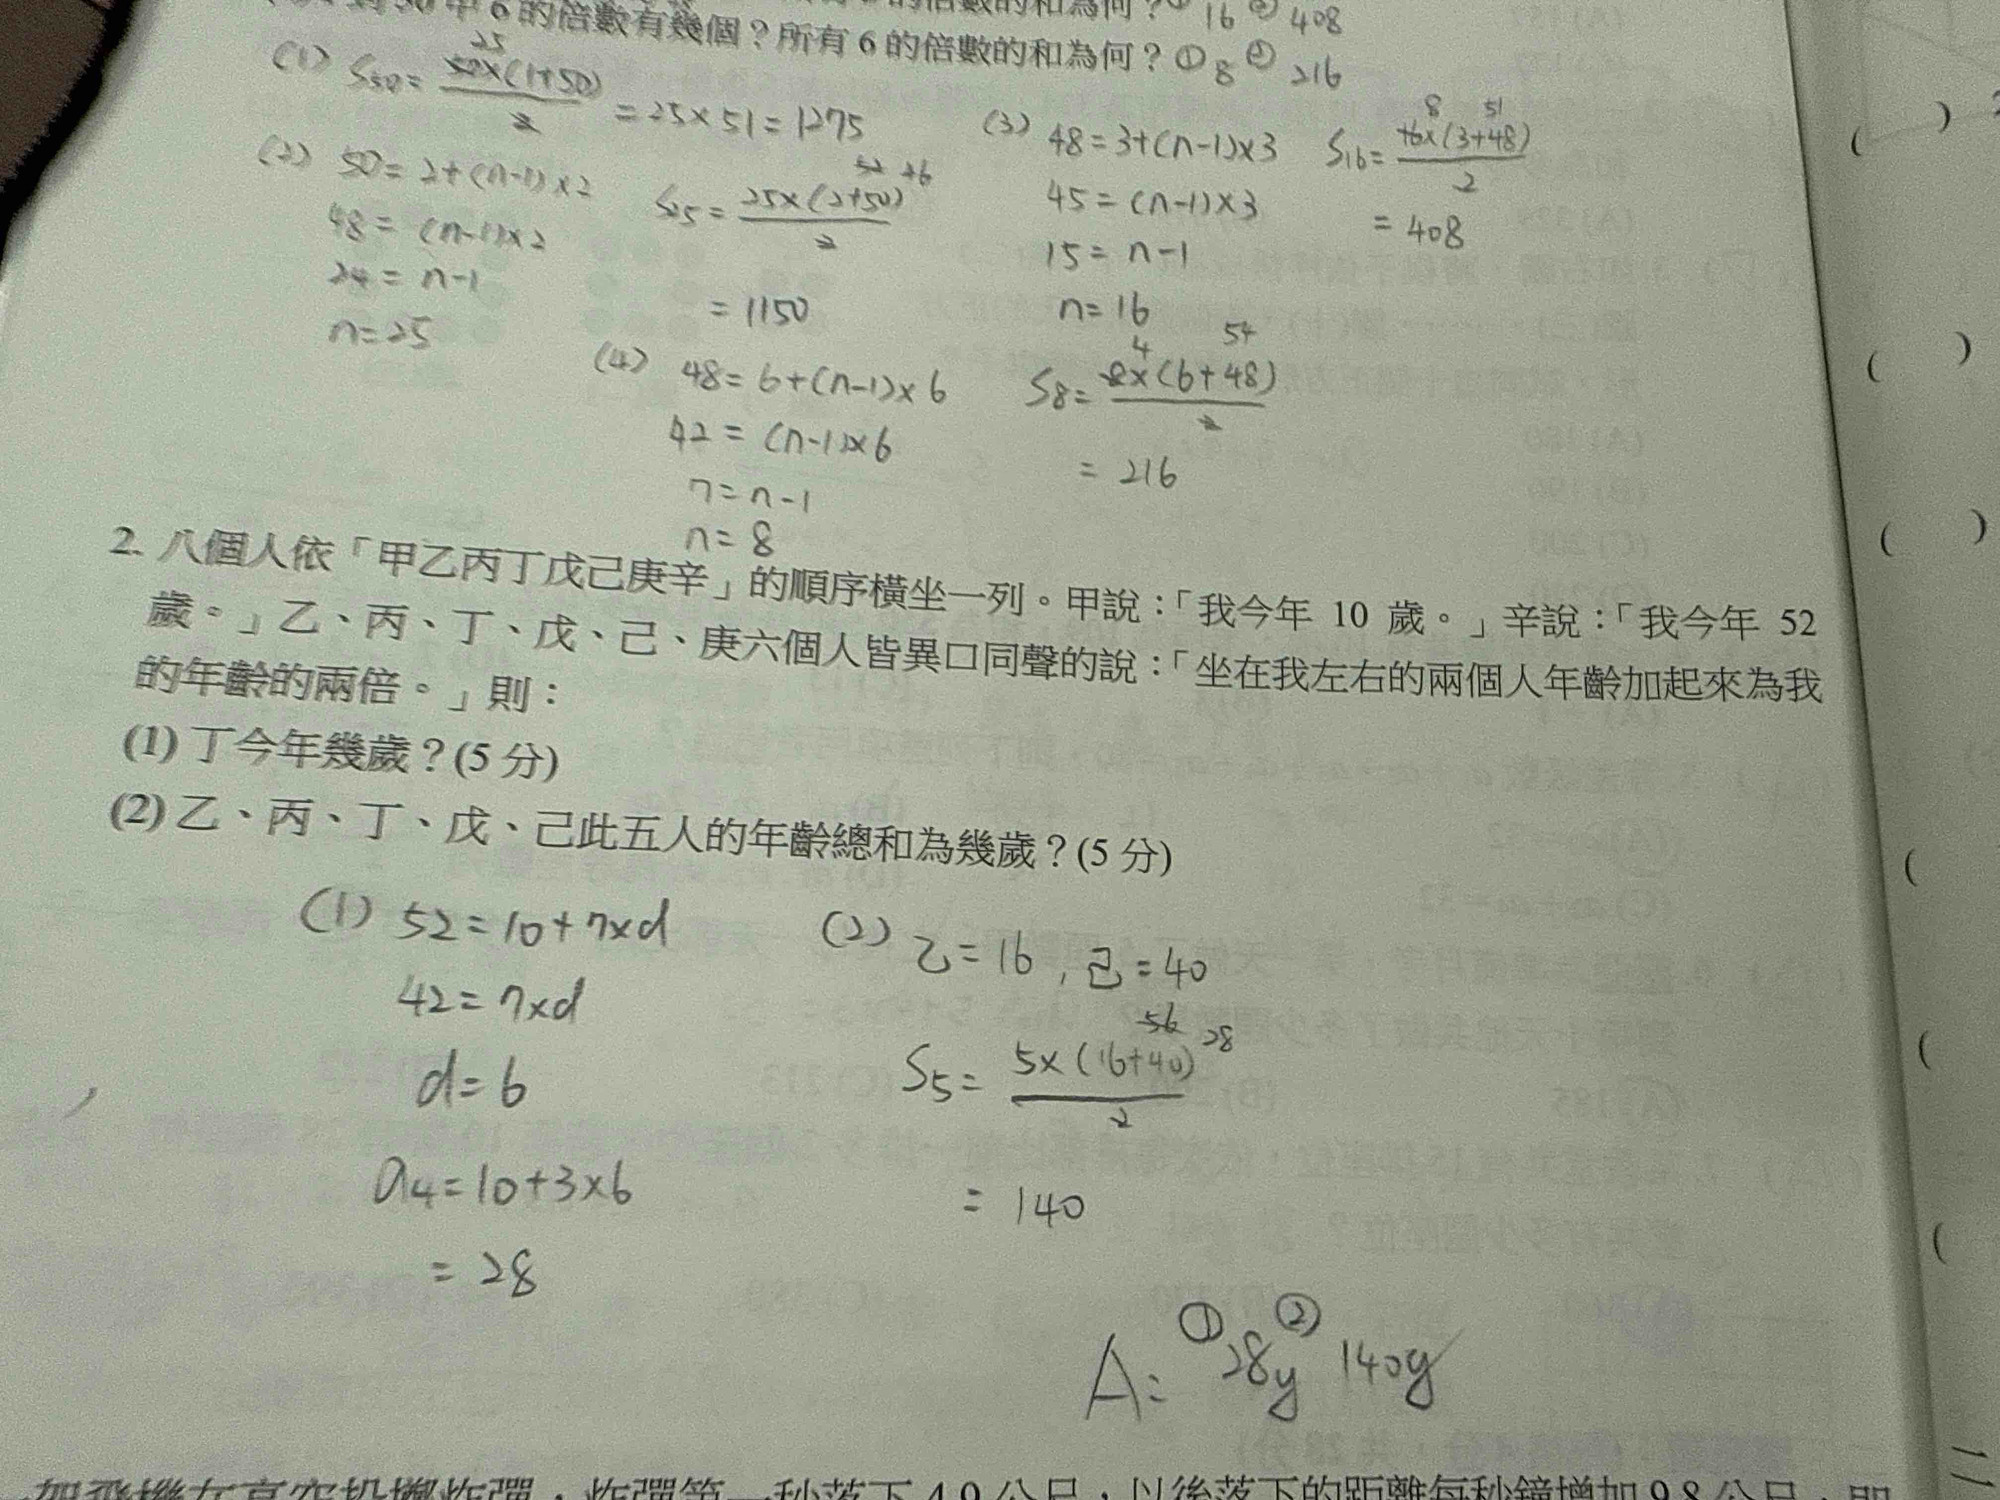 的倍數的和為何？① 16 ② 408
6 的倍數有幾個？所有 6 的倍數的和為何？① 8 ② 216
(1) S50 = 50×(1+50) / 2 25
= 25×51 = 1275
(2) 50 = 2+(n-1)×2
48 = (n-1)×2
24 = n-1
n = 25
S25 = 25×(2+50) / 2 52 26
= 1150
(3) 48 = 3+(n-1)×3
45 = (n-1)×3
15 = n-1
n = 16
S16 = 16×(3+48) / 2 8 51
= 408
(4) 48 = 6+(n-1)×6
42 = (n-1)×6
7 = n-1
n = 8
S8 = 8×(6+48) / 2 4 54
= 216
2. 八個人依「甲乙丙丁戊己庚辛」的順序橫坐一列。甲說：「我今年 10 歲。」辛說：「我今年 52
歲。」乙、丙、丁、戊、己、庚六個人皆異口同聲的說：「坐在我左右的兩個人年齡加起來為我
的年齡的兩倍。」則：
(1) 丁今年幾歲？(5 分)
(2) 乙、丙、丁、戊、己此五人的年齡總和為幾歲？(5 分)
(1) 52 = 10+7×d
42 = 7×d
d = 6
a4 = 10+3×6
= 28
(2) 乙 = 16 , 己 = 40
S5 = 5×(16+40) / 2 56 28
= 140
A: ① 28y ② 140y
一架飛機在高空投擲炸彈，炸彈第一秒落下 4.9 公尺，以後落下的距離每秒鐘增加 9.8 公尺，即
( )
( )
( )
(
(
(
二